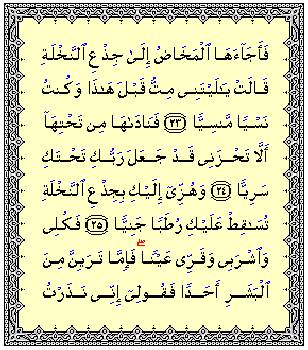 فَأَجَآءَهَا ٱلْمَخَاضُ إِلَىٰ جِذْعِ ٱلنَّخْلَةِ
قَالَتْ يَٰلَيْتَنِى مِتُّ قَبْلَ هَٰذَا وَكُنتُ
نَسْيًا مَّنسِيًّا ﴿٢٣﴾ فَنَادَىٰهَا مِن تَحْتِهَآ
أَلَّا تَحْزَنِى قَدْ جَعَلَ رَبُّكِ تَحْتَكِ
سَرِيًّا ﴿٢٤﴾ وَهُزِّىٓ إِلَيْكِ بِجِذْعِ ٱلنَّخْلَةِ
تُسَٰقِطْ عَلَيْكِ رُطَبًا جَنِيًّا ﴿٢٥﴾ فَكُلِى
وَٱشْرَبِى وَقَرِّى عَيْنًا ۖ فَإِمَّا تَرَيِنَّ مِنَ
ٱلْبَشَرِ أَحَدًا فَقُولِىٓ إِنِّى نَذَرْتُ